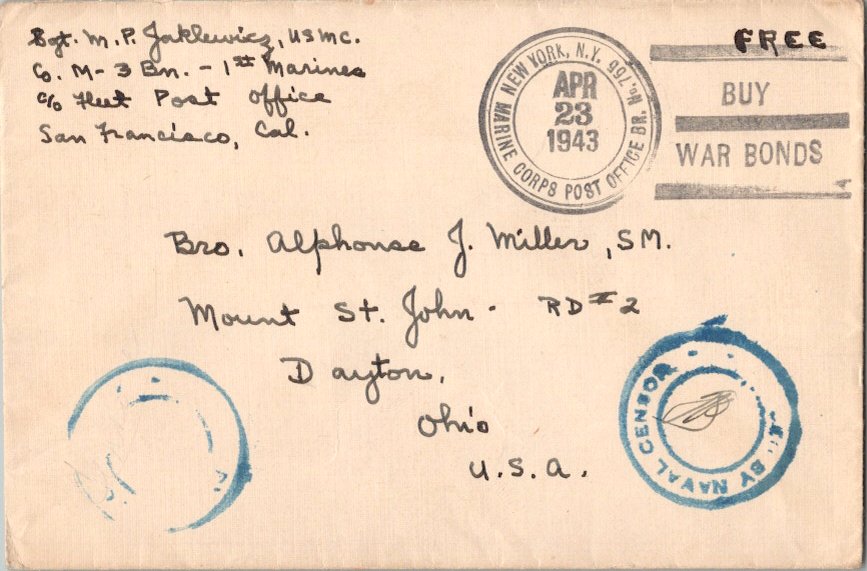 Sgt. M. P. Jaklewicz, USMC.
Co. M - 3 Bn. - 1st Marines
c/o Fleet Post Office
San Francisco, Cal.
NEW YORK, N.Y.
MARINE CORPS POST OFFICE BR. No. 756
APR
23
1943
FREE
BUY
WAR BONDS
Bro. Alphonse J. Miller, S.M.
Mount St. John - RD #2
Dayton,
Ohio
U.S.A.
BY NAVAL CENSOR